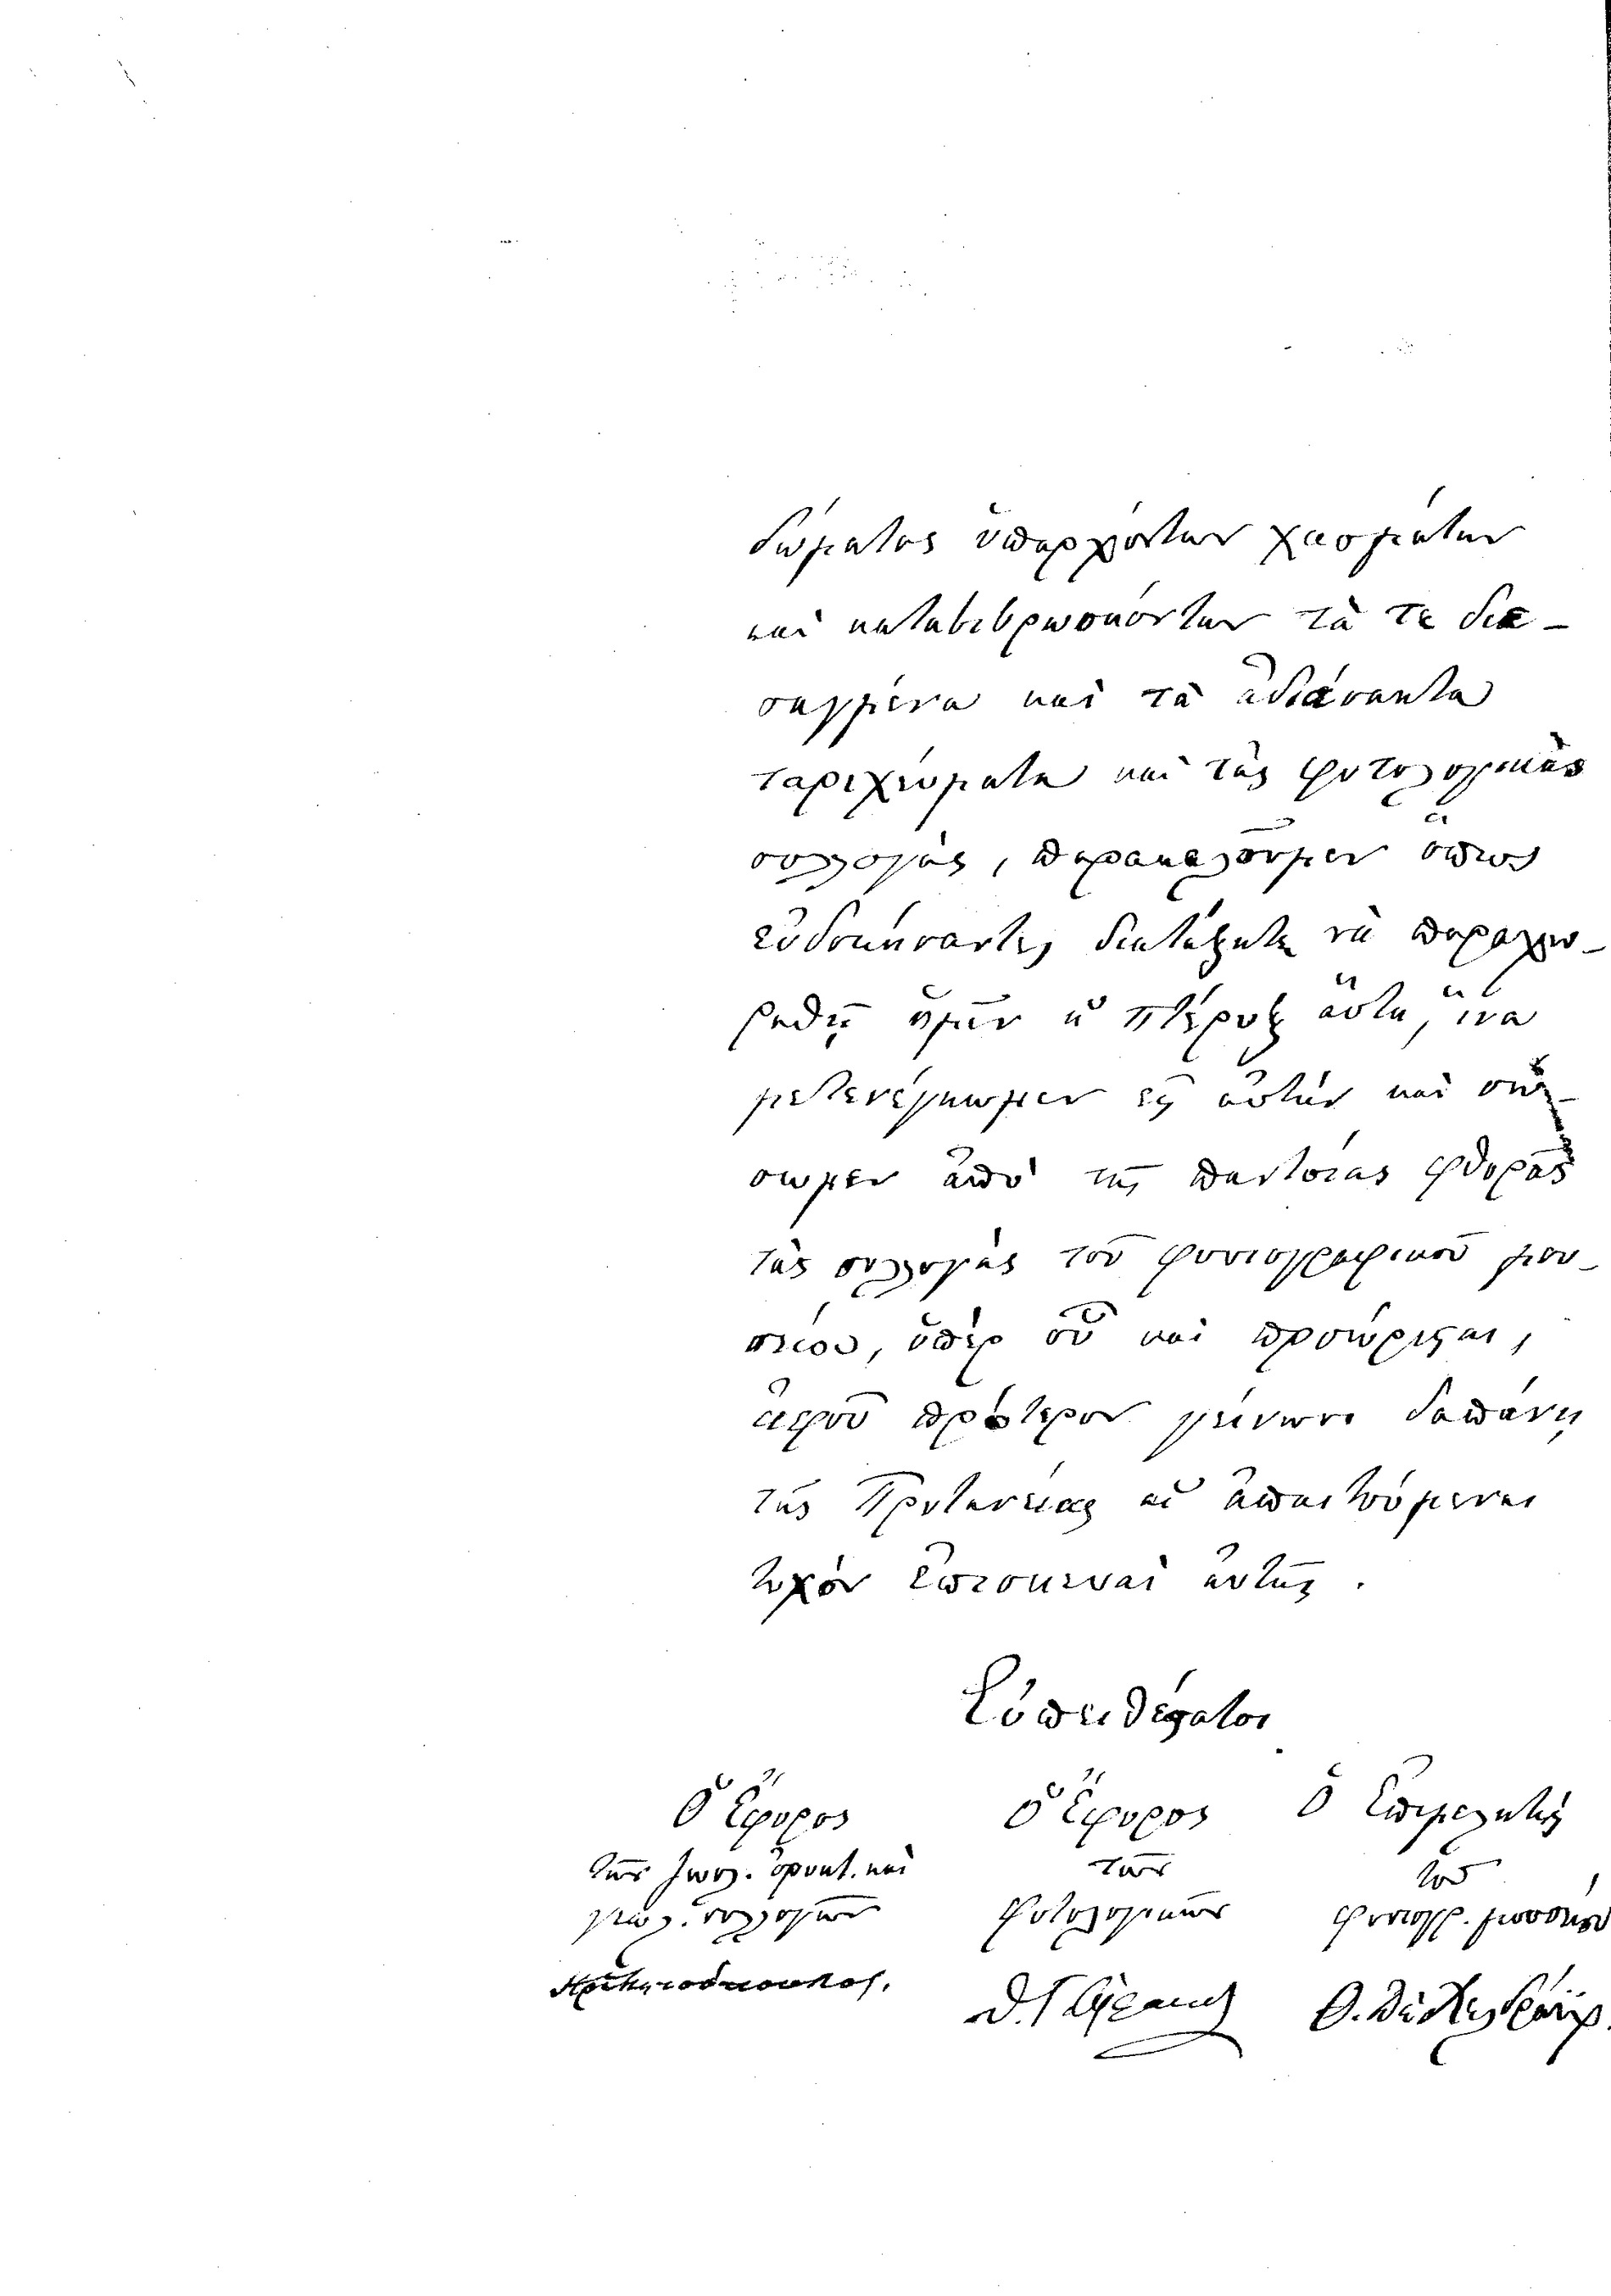 δώματος ὑπαρχόντων χασμάτων
καὶ καταβιβρωσκόντων τὰ τε δια-
σαγμένα καὶ τὰ ἀδιάσακτα
ταριχεύματα καὶ τὰς φυτολογικὰς
συλλογὰς, παρακαλοῦμεν ὅπως
εὐδοκήσαντες διατάξητε νὰ παραχω-
ρηθῇ ἡμῖν ἡ πτέρυξ αὕτη, ἵνα
μετενέγκωμεν εἰς αὐτὴν καὶ σώ-
σωμεν ἀπὸ τῆς παντοίας φθορᾶς
τὰς συλλογὰς τοῦ φυσιογραφικοῦ μου-
σείου, ὑπὲρ οὗ καὶ προώρισται,
ἀφοῦ πρότερον γείνωσι δαπάνῃ
τῆς Πρυτανείας αἱ ἀπαιτούμεναι
τυχὸν ἐπισκευαὶ αὐτῆς.
Εὐπειθέστατοι
Ὁ Ἔφορος Ὁ Ἔφορος Ὁ Ἐπιμελητὴς
τῶν ζωολ. ὀρυκτ. καὶ τῶν τοῦ
γεωλ. συλλογῶν Φυτολογικῶν Φυσιογρ. μουσείου
Θ. δὲ Χελδράϊχ.